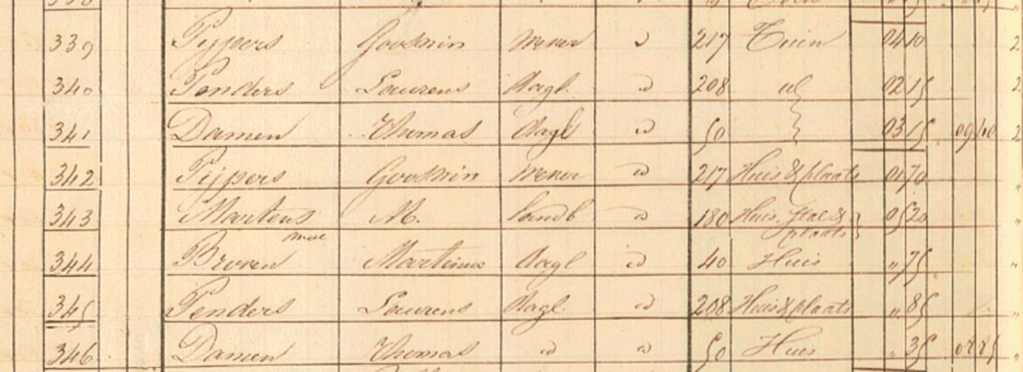 339 Pijpers Gooswin wever id 217 Tuin 04 10 2
340 Penders Laurens dagl. id 208 id 02 15 2
341 Damen Thomas dagl id 50 03 15 09 40 2
342 Pijpers Gooswin wever id 217 Huis & plaats 01 70 "
343 Martens M. landb id 180 Huis, stal & plaats 05 20 "
mue
344 Broven Martinus dagl id 40 Huis " 75 "
345 Penders Laurens dagl id 208 Huis & plaats " 85 "
346 Damen Thomas id id 50 Huis " 35 08 85 "